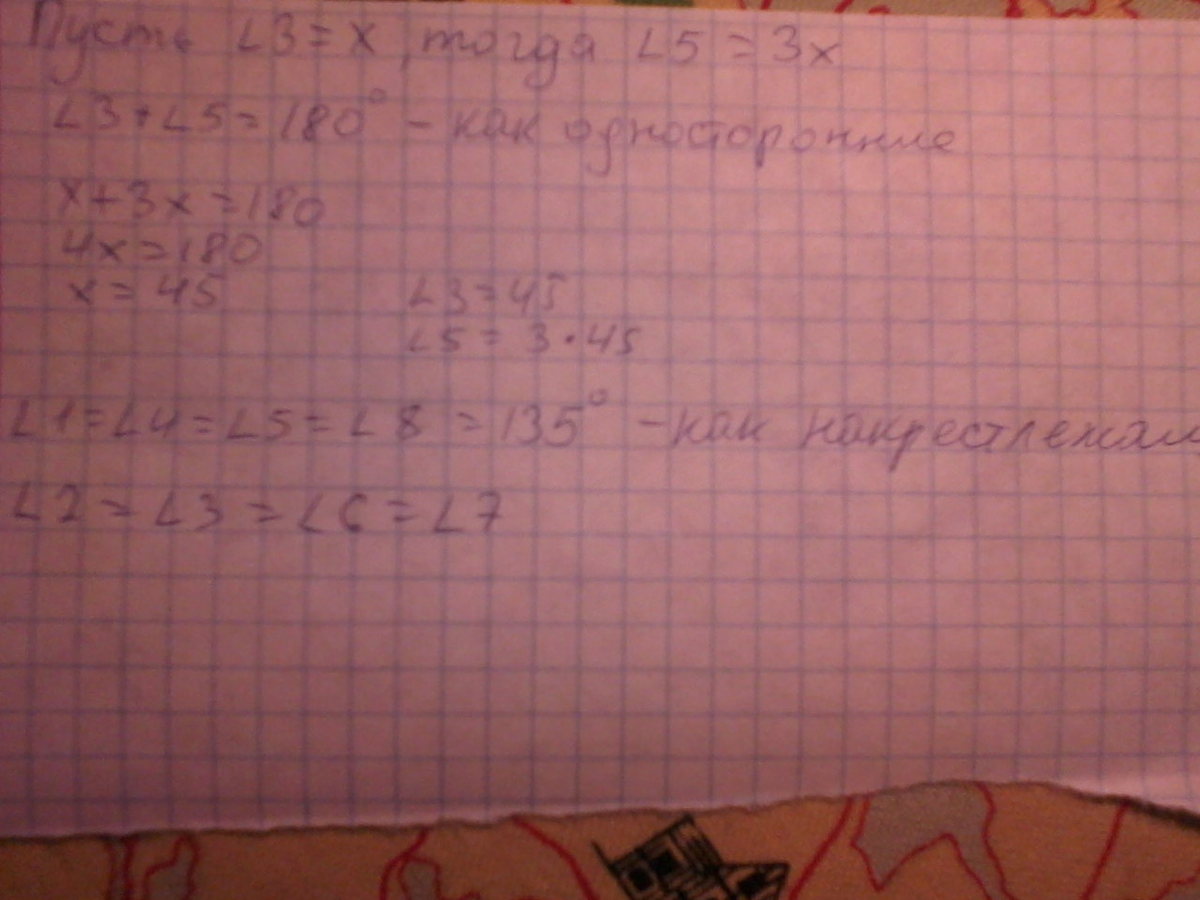 Пусть ∠3 = x, тогда ∠5 = 3x
∠3+∠5=180° – как односторонние
x+3x=180
4x=180
x=45 ∠3=45
∠5=3·45
∠1=∠4=∠5=∠8=135° – как накрестлежащ
∠2=∠3=∠6=∠7